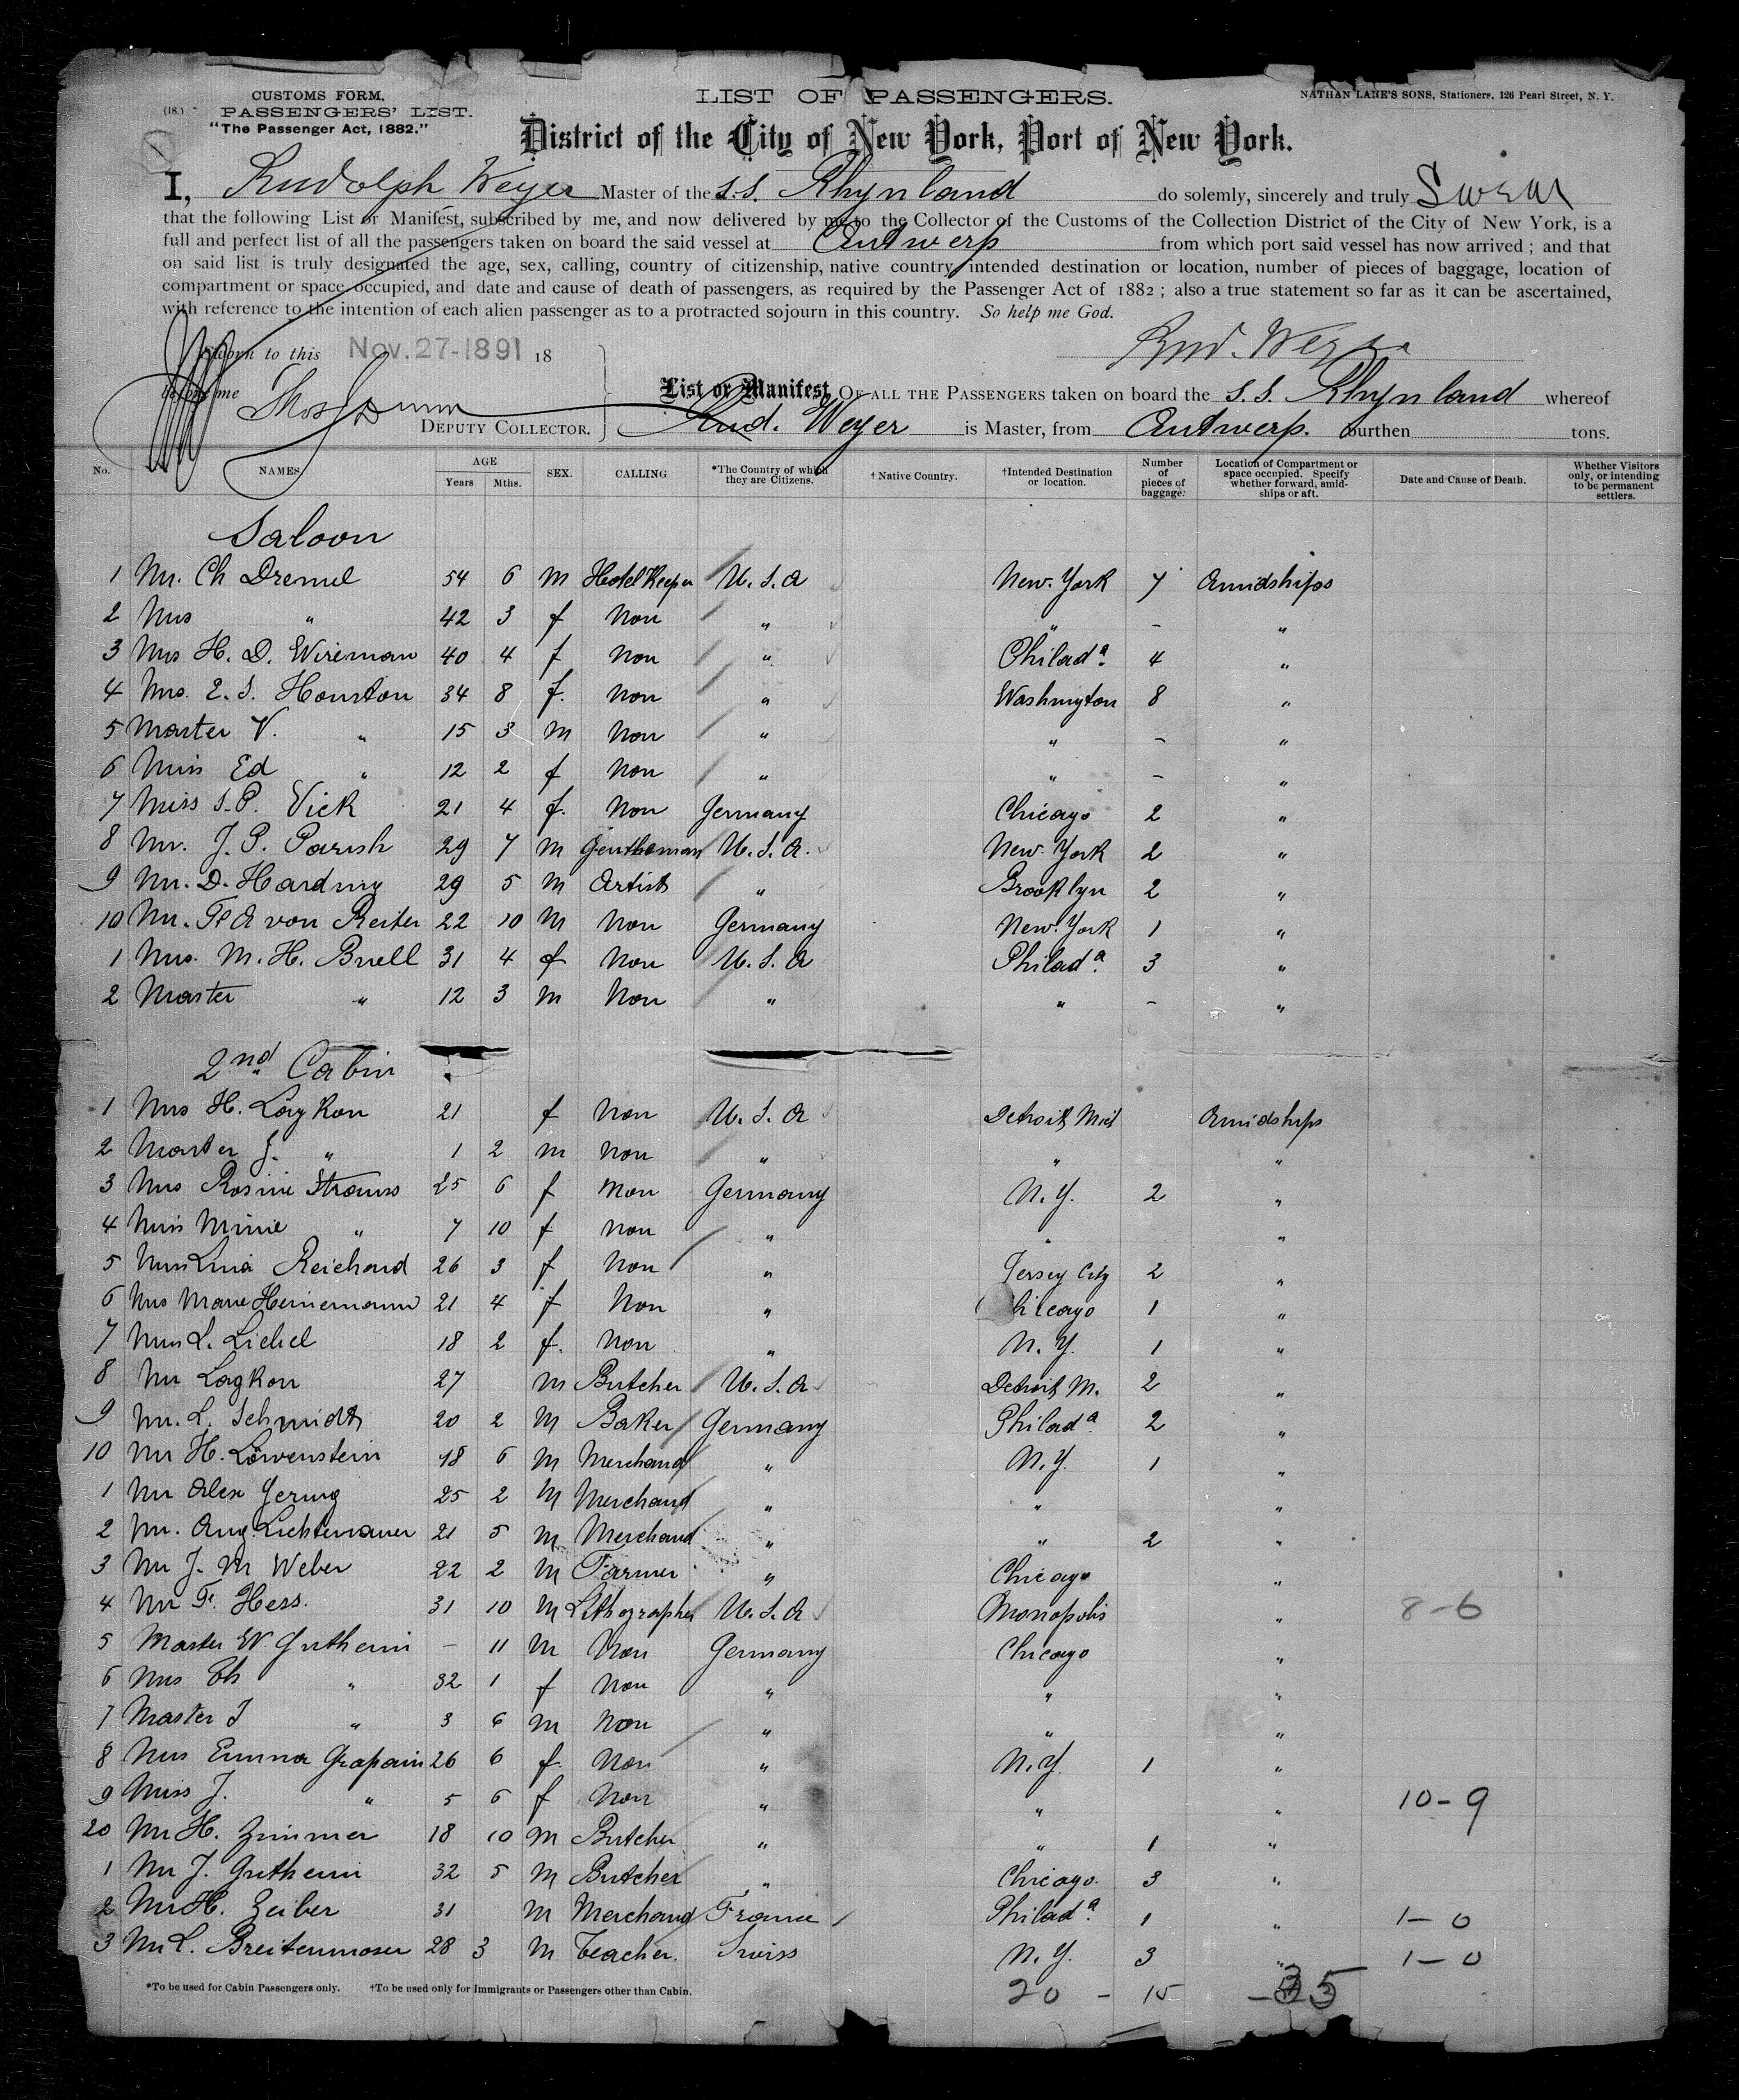 CUSTOMS FORM,
(18.) PASSENGERS' LIST.
"The Passenger Act, 1882."
LIST OF PASSENGERS.
NATHAN LANE'S SONS, Stationers, 126 Pearl Street, N. Y.
District of the City of New York, Port of New York.
I, Rudolph Weyer Master of the S.S. Rhynland do solemly, sincerely and truly Swear
that the following List or Manifest, subscribed by me, and now delivered by me to the Collector of the Customs of the Collection District of the City of New York, is a
full and perfect list of all the passengers taken on board the said vessel at Antwerp from which port said vessel has now arrived; and that
on said list is truly designated the age, sex, calling, country of citizenship, native country, intended destination or location, number of pieces of baggage, location of
compartment or space occupied, and date and cause of death of passengers, as required by the Passenger Act of 1882; also a true statement so far as it can be ascertained,
with reference to the intention of each alien passenger as to a protracted sojourn in this country. So help me God.
Sworn to this Nov. 27-1891 18
Rud. Weyer
before me Thos Dunn
DEPUTY COLLECTOR.
List or Manifest, OF ALL THE PASSENGERS taken on board the S.S. Rhynland whereof
Rud. Weyer is Master, from Antwerp. burthen tons.
No. NAMES AGE Years Mths. SEX. CALLING *The Country of which they are Citizens. †Native Country. †Intended Destination or location. Number of pieces of baggage. Location of Compartment or space occupied. Specify whether forward, amid-ships or aft. Date and Cause of Death. Whether Visitors only, or intending to be permanent settlers.
Saloon
1 Mr. Ch Dremel 54 6 m Hotel Keeper U.S.A New-York 7 Amidships
2 Mrs " 42 3 f Non " " - "
3 Mrs H. D. Wireman 40 4 f Non " Philada. 4 "
4 Mrs. E. S. Houston 34 8 f. Non " Washington 8 "
5 Master V. " 15 3 m Non " " - "
6 Miss Ed " 12 2 f Non " " - "
7 Miss S.P. Vick 21 4 f. Non Germany Chicago 2 "
8 Mr. J. P. Parish 29 7 m Gentleman U.S.A. New-York 2 "
9 Mr. D. Harding 29 5 m Artist " Brooklyn 2 "
10 Mr. F A von Reiter 22 10 m Non Germany New-York 1 "
1 Mrs. M. H. Buell 31 4 f Non U.S.A Philada. 3 "
2 Master " 12 3 m Non " " - "
2nd Cabin
1 Mrs H. Lagkon 21 f Non U.S.A Detroit Mich Amidships
2 Master J. " 1 2 m Non " " "
3 Mrs Rosine Strauss 25 6 f Non Germany N.Y. 2 "
4 Miss Minie " 7 10 f Non " " "
5 Miss Lina Reichard 26 3 f Non " Jersey City 2 "
6 Mrs Marie Heinemann 21 4 f Non " Chicago 1 "
7 Miss L. Liebel 18 2 f. Non " N.Y. 1 "
8 Mr Lagkon 27 m Butcher U.S.A Detroit M. 2 "
9 Mr. L. Schmidt 20 2 m Baker Germany Philada. 2 "
10 Mr H. Löwenstein 48 6 m Merchand " N.Y. 1 "
1 Mr Alex Gering 25 2 m Merchand " " "
2 Mr. Aug. Lichtenauer 21 5 m Merchand " " 2 "
3 Mr J. M Weber 22 2 m Farmer " Chicago "
4 Mr F. Hess. 31 10 m Lithographer U.S.A Monopolis " 8-6
5 Master W. Gutheim - 11 m Non Germany Chicago "
6 Mrs Th " 32 1 f Non " " "
7 Master J " 3 6 m Non " " "
8 Mrs Emma Grapain 26 6 f. Non " N.Y. 1 "
9 Miss J. " 5 6 f Non " " " 10-9
20 Mr H. Zimmer 18 10 m Butcher " " 1 "
1 Mr J. Gutheim 32 5 m Butcher " Chicago. 3 "
2 Mr H. Zeiber 31 m Merchand France Philada. 1 " 1-0
3 Mr L. Breitenmoser 28 3 m Teacher. Swiss N.Y. 3 " 1-0
*To be used for Cabin Passengers only. †To be used only for Immigrants or Passengers other than Cabin.
20 - 15 - 35